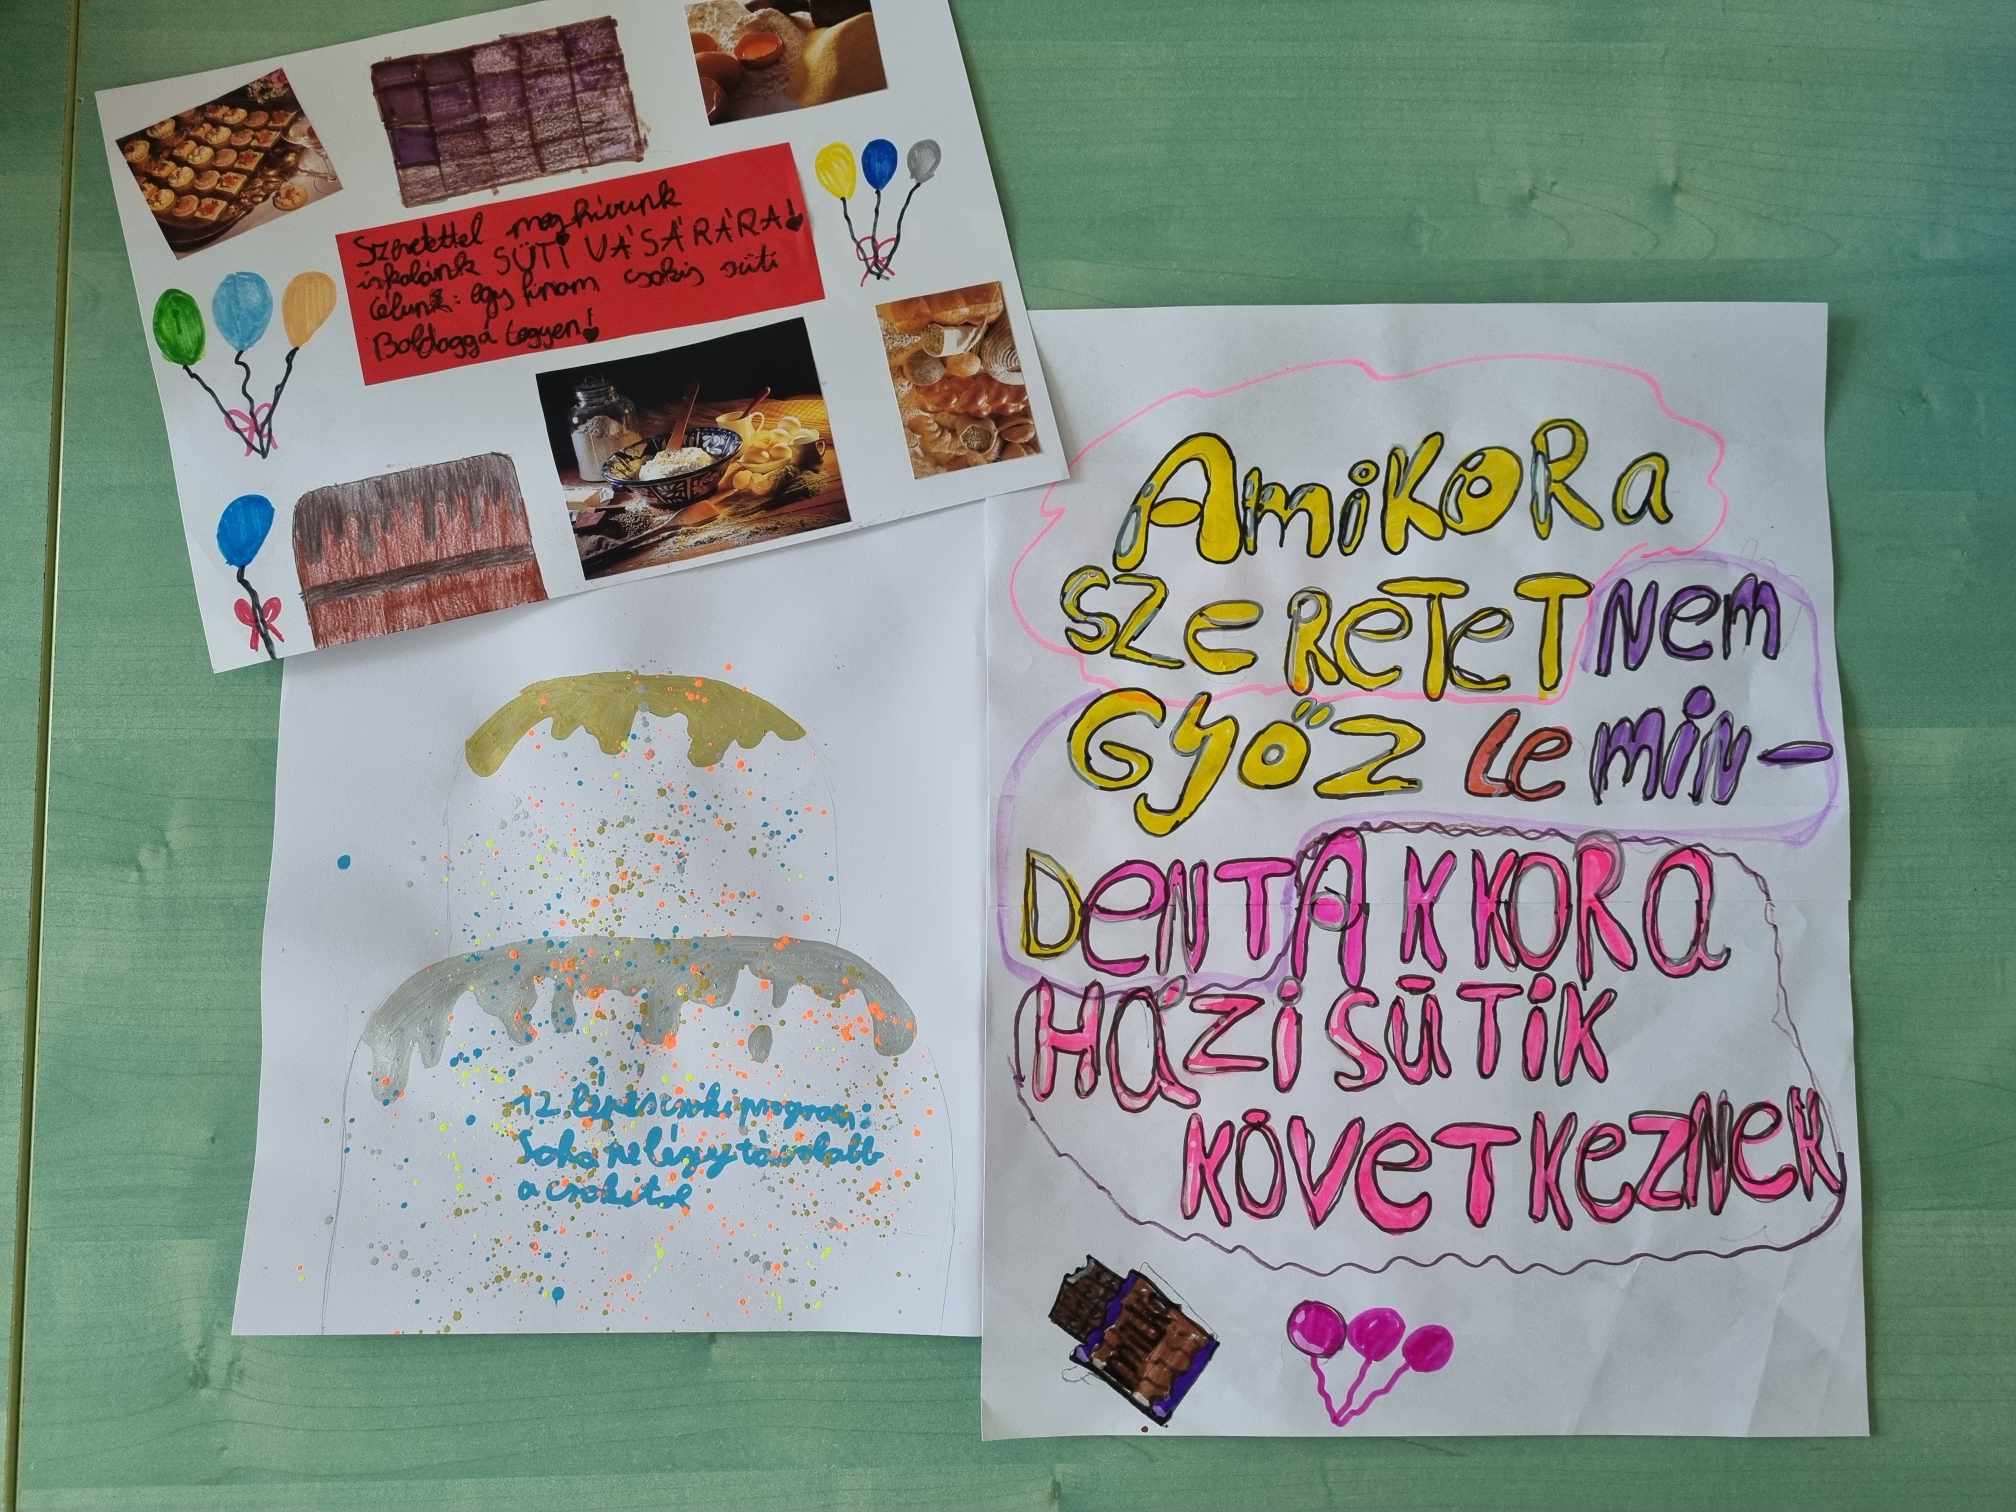 Szeretettel meghívunk
iskolánk SÜTI VÁSÁRÁRA!
Célunk: egy finom csokis süti
Boldoggá tegyen!
AmiKOR a
SZERETET Nem
GYŐZ Le min-
DENT AKKOR a
HÁZI SÜTIK
KÖVETKEZNEK
12 lépéses csoki program:
Soha ne légy távolabb
a csokitól